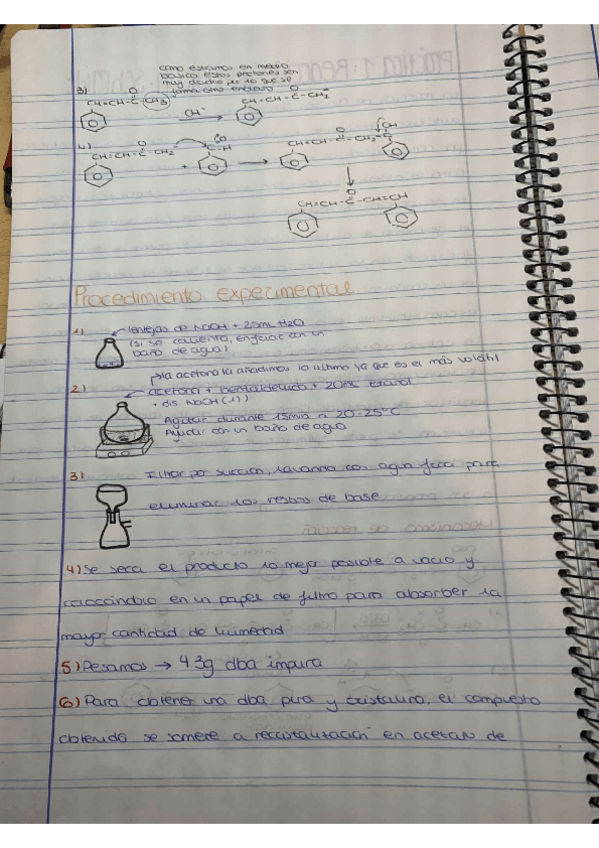 como estamos en medio
básico estos protones son
muy ácidos por lo que se
forma otro enolato
3)
O
CH=CH-C-CH3
OH-
O
CH=CH-C-CH2-
4)
O
CH=CH-C-CH2-
+
O
C-H
O
CH=CH-C-CH2-
OH
O
CH=CH-C-CH=CH
Procedimiento experimental
1)
lentejas de NaOH + 25mL H2O
(si se calienta, enfriar con un
baño de agua)
la acetona la añadimos lo último ya que es el más volátil
2)
acetona + benzaldehído + 20mL Etanol
+ dis. NaOH (1)
Agitar durante 15min a 20-25°C
Ayudar con un baño de agua
3)
Filtrar por succión, lavando con agua fría para
eliminar los restos de base
4) Se seca el producto lo mejor posible a vacío y
colocándolo en un papel de filtro para absorber la
mayor cantidad de humedad
5) Pesamos → 43g dba impura
6) Para obtener una dba pura y cristalina, el compuesto
obtenido se somete a recristalización en acetato de